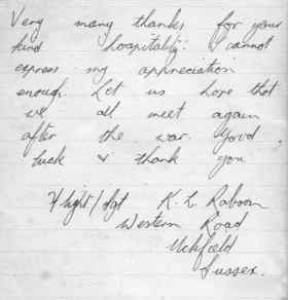 Very many thanks for your
kind hospitality. I cannot
express my appreciation
enough. Let us hope that
we all meet again
after the war. Good
luck & thank you
Flight/Sgt K. L.
Western Road
Uckfield
Sussex.